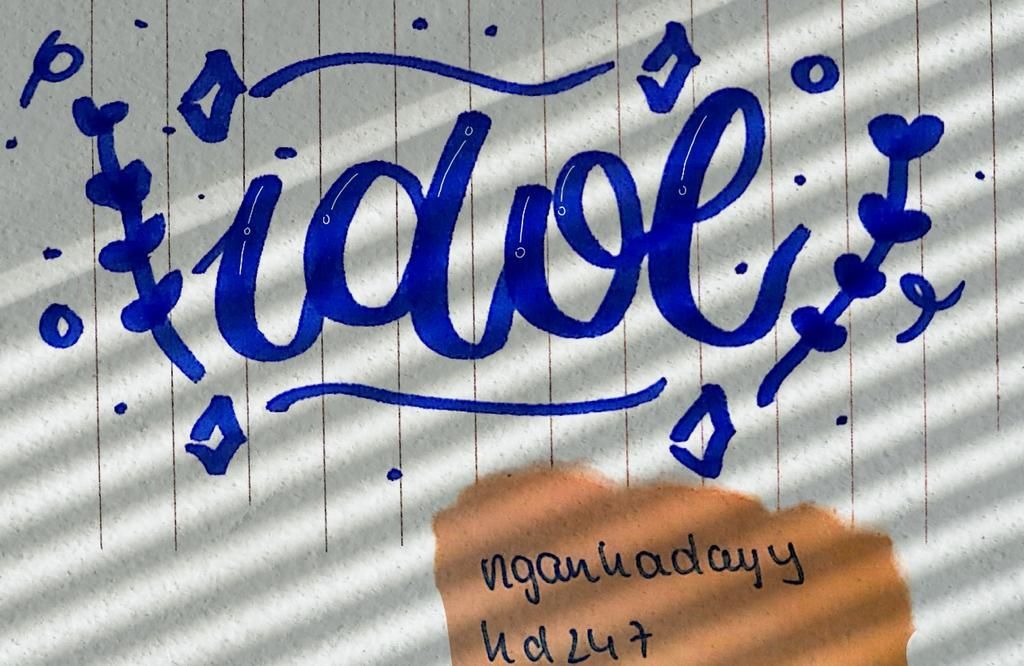 idol
nganhadayy
hd247